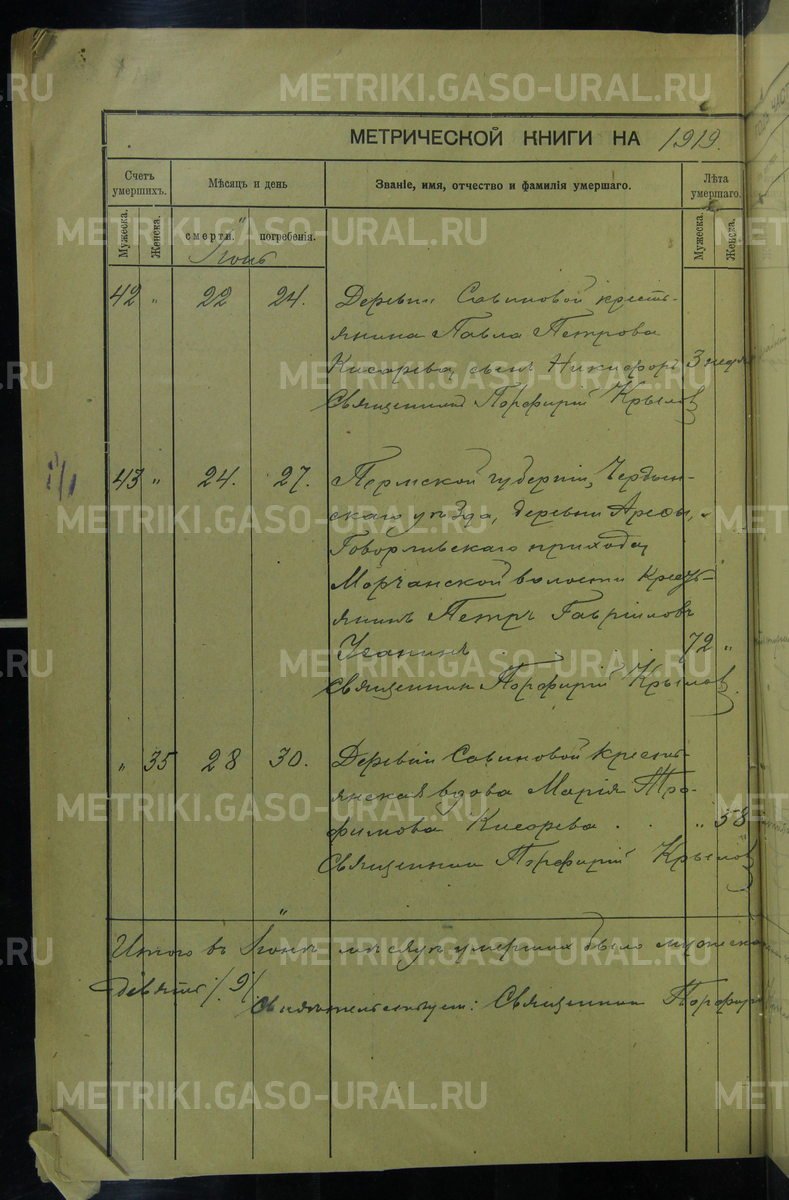 МЕТРИЧЕСКОЙ КНИГИ НА 1919.
Счетъ умершихъ.
Мѣсяцъ и день
Званіе, имя, отчество и фамилія умершаго.
Лѣта умершаго.
Мужеска.
Женска.
смерти.
погребенія.
Мужеска.
Женска.
Іюнь
42 " 22 24. Деревни Савиновой кресть-
янина Павла Петрова
Кисарева сынъ Никифоръ 3 нед
Священник Порфирій Крылов
43 " 24. 27. Пермской губерніи, Чердын-
скаго уѣзда, деревни Арефы,
Говорливскаго прихода,
Морчанской волости Крест-
янинъ Петръ Гавріиловъ
72 "
Священник Порфирій Крылов
" 35 28 30. Деревни Савиновой крестьянская вдова Марія Тро-
фимова Кисарева . . " 58
Священник Порфирій Крылов
Итого въ Іюнѣ мѣсяцѣ умершихъ было мужеска
девять /9/
Свидѣтельствуем: Священник Порфир
METRIKI.GASO-URAL.RU